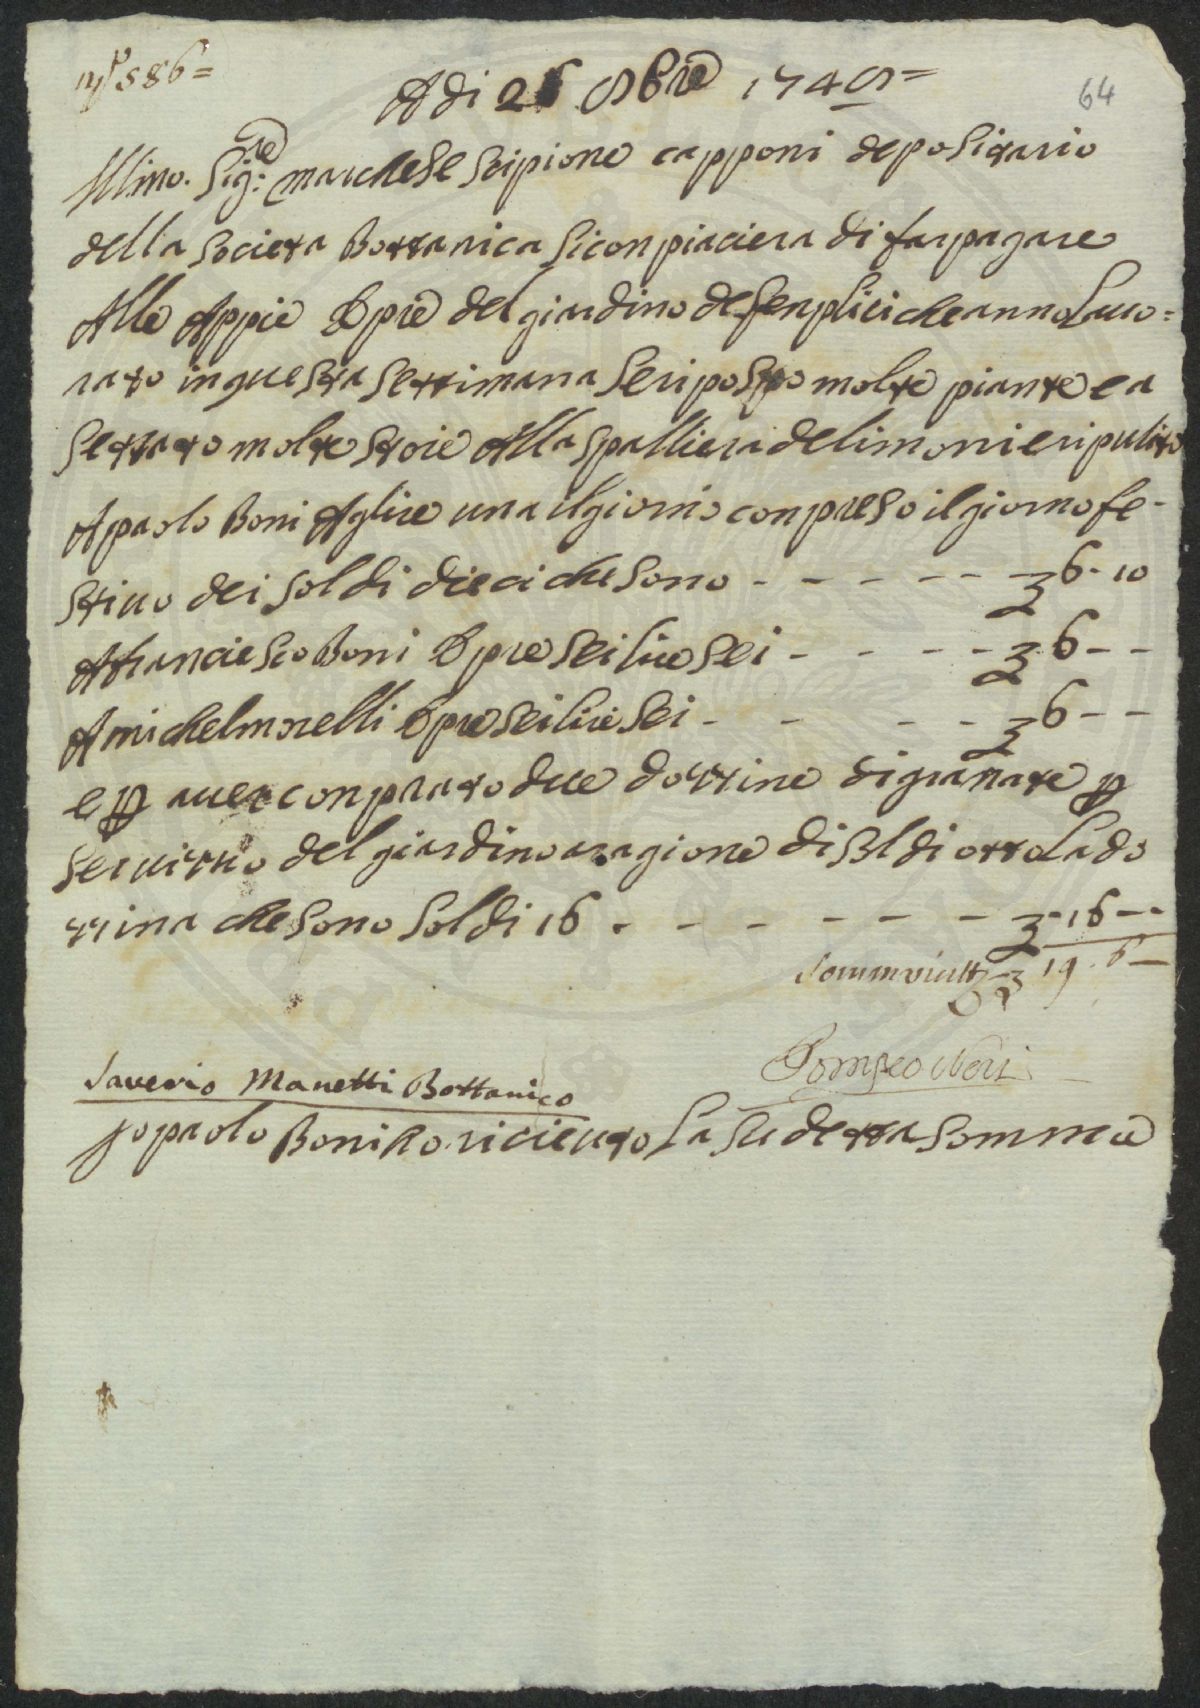 N° 586=
64
Adi 26 8bre 1748=
Illmo. Sig:re marchese Scipione capponi depositario
della Società Bottanica Si conpiaciera di far pagare
Alle Appie Opre del giardino de Senplici che anno Lauo=
rato in questa Settimana Se riposto molte piante e a
Settato molte Stoie Alla Spalliera de limoni e ripulito
A paolo Boni A glire una il giorno conpreso il giorno fe-
stiuo dei Soldi dieci che Sono - - - - - - 6-10
A franciesco Boni Opre Sei lire Sei - - - - - 6 - -
A michel morelli Opre Sei lire Sei - - - - 6 - -
e p auer conprato due dozzine di granate p
Seruizio del giardino a ragione di Soldi otto La do
zzina che Sono Soldi 16 - - - - - - - -16--
19.6-
Pompeo Neri
Saverio Manetti Bottanico
Jo paolo Boni Ro riceuto La Su detta Somma